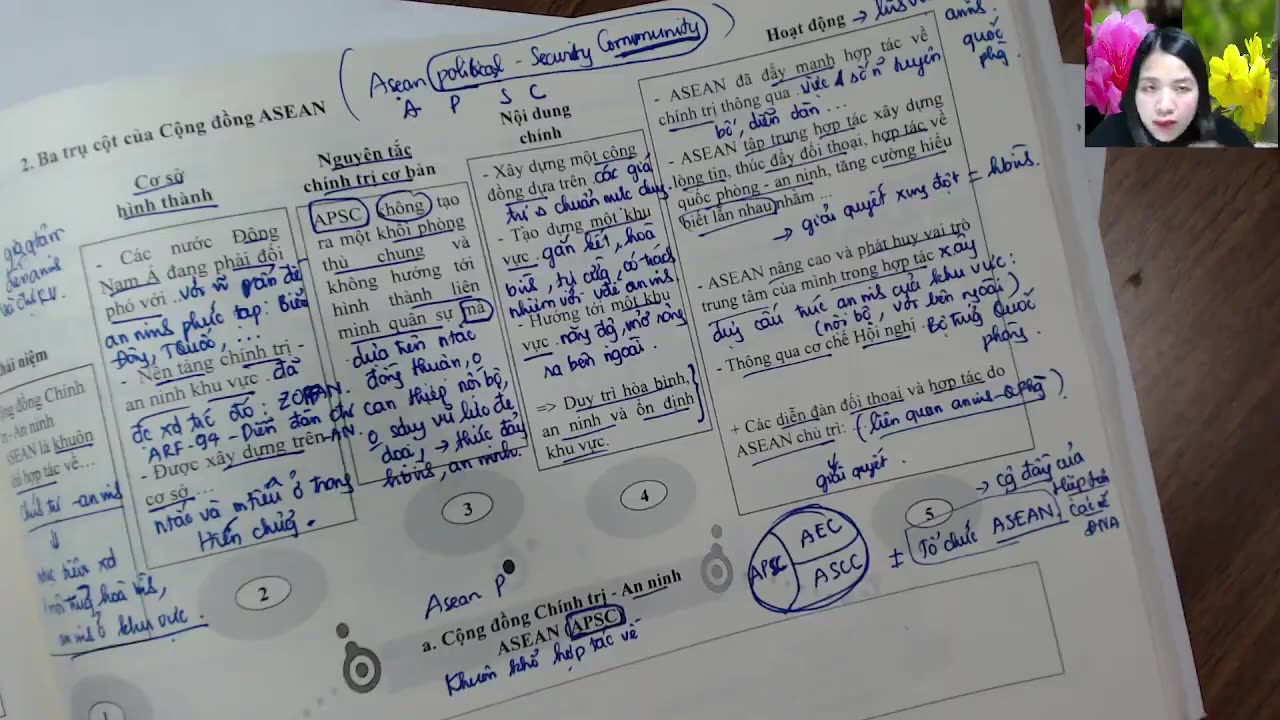 (Asean political - Security Community)
A P S C
2. Ba trụ cột của Cộng đồng ASEAN
Cơ sở
hình thành
- Các nước Đông
Nam Á đang phải đối
phó với
an ninh phức tạp: Biển
Đông,
- Nền tảng chính trị -
an ninh khu vực đã
ARF-94 - Diễn đàn
- Được xây dựng trên
cơ sở...
ntắc và mtiêu ở trong
Hiến chương.
2
Nguyên tắc
chính trị cơ bản
APSC không tạo
ra một khối phòng
thủ chung và
không hướng tới
hình thành liên
minh quân sự mà
dựa trên ntắc
đồng thuận, o
can thiệp nội bộ,
doạ, → thúc đẩy
hbình, an ninh.
3
Nội dung
chính
- Xây dựng một cộng
đồng dựa trên các giá
trị
- Tạo dựng một khu
vực gắn kết, hoà
bình, tự cường, có trách
nhiệm với vđề an ninh
- Hướng tới một khu
vực năng động, mở rộng
ra bên ngoài.
=> Duy trì hòa bình,
an ninh và ổn định
khu vực.
4
Hoạt động →
quốc
phg
- ASEAN đã đẩy mạnh hợp tác về
chính trị thông qua việc tuyên
bố, diễn đàn...
- ASEAN tập trung hợp tác xây dựng
lòng tin, thúc đẩy đối thoại, hợp tác về
quốc phòng - an ninh, tăng cường hiểu
biết lẫn nhau nhằm ...
→ giải quyết xung đột = hbình.
- ASEAN nâng cao và phát huy vai trò
trung tâm của mình trong hợp tác xây
dựng cấu trúc an ninh của khu vực:
(nội bộ, với bên ngoài)
- Thông qua cơ chế Hội nghị Bộ trưởng Quốc
phòng.
+ Các diễn đàn đối thoại và hợp tác do
ASEAN chủ trì: (liên quan an ninh-Qphg)
giải quyết.
5
hái niệm
ộng đồng Chính
- An ninh
ASEAN là khuôn
hợp tác về...
Chính trị - an ninh
↓
an ninh ở khu vực.
1
Asean P
a. Cộng đồng Chính trị - An ninh
ASEAN (APSC)
Khuôn khổ hợp tác về
APSC AEC
ASCC
± Tổ chức ASEAN
ĐNA